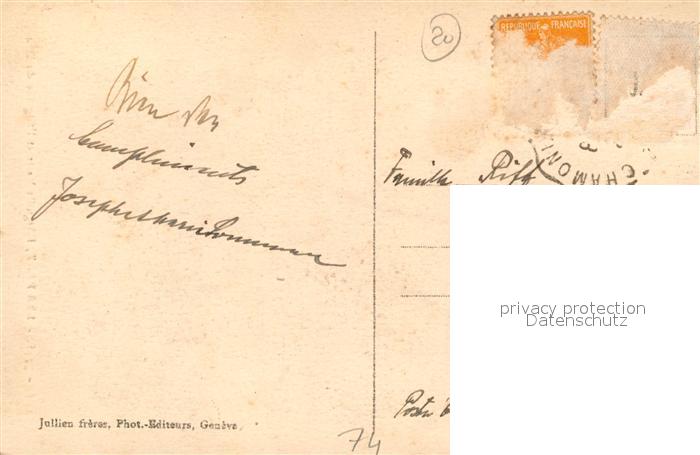 20
REPUBLIQUE FRANÇAISE
Bien des
Compliments
CHAMONI
Famille Riff
privacy protection
Datenschutz
Poste
Jullien frères, Phot.-Editeurs, Genève.
74